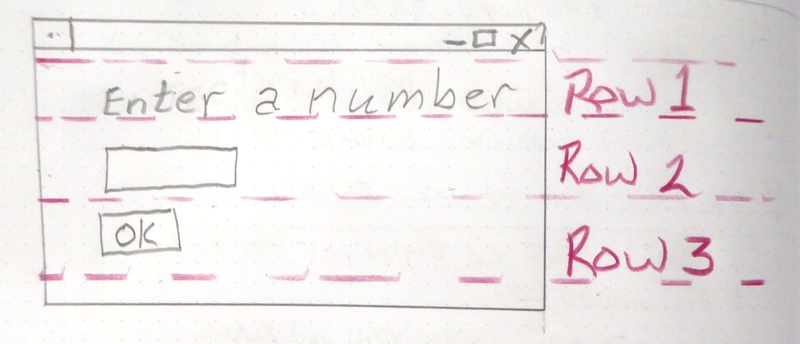 Enter a number Row 1
Row 2
OK Row 3